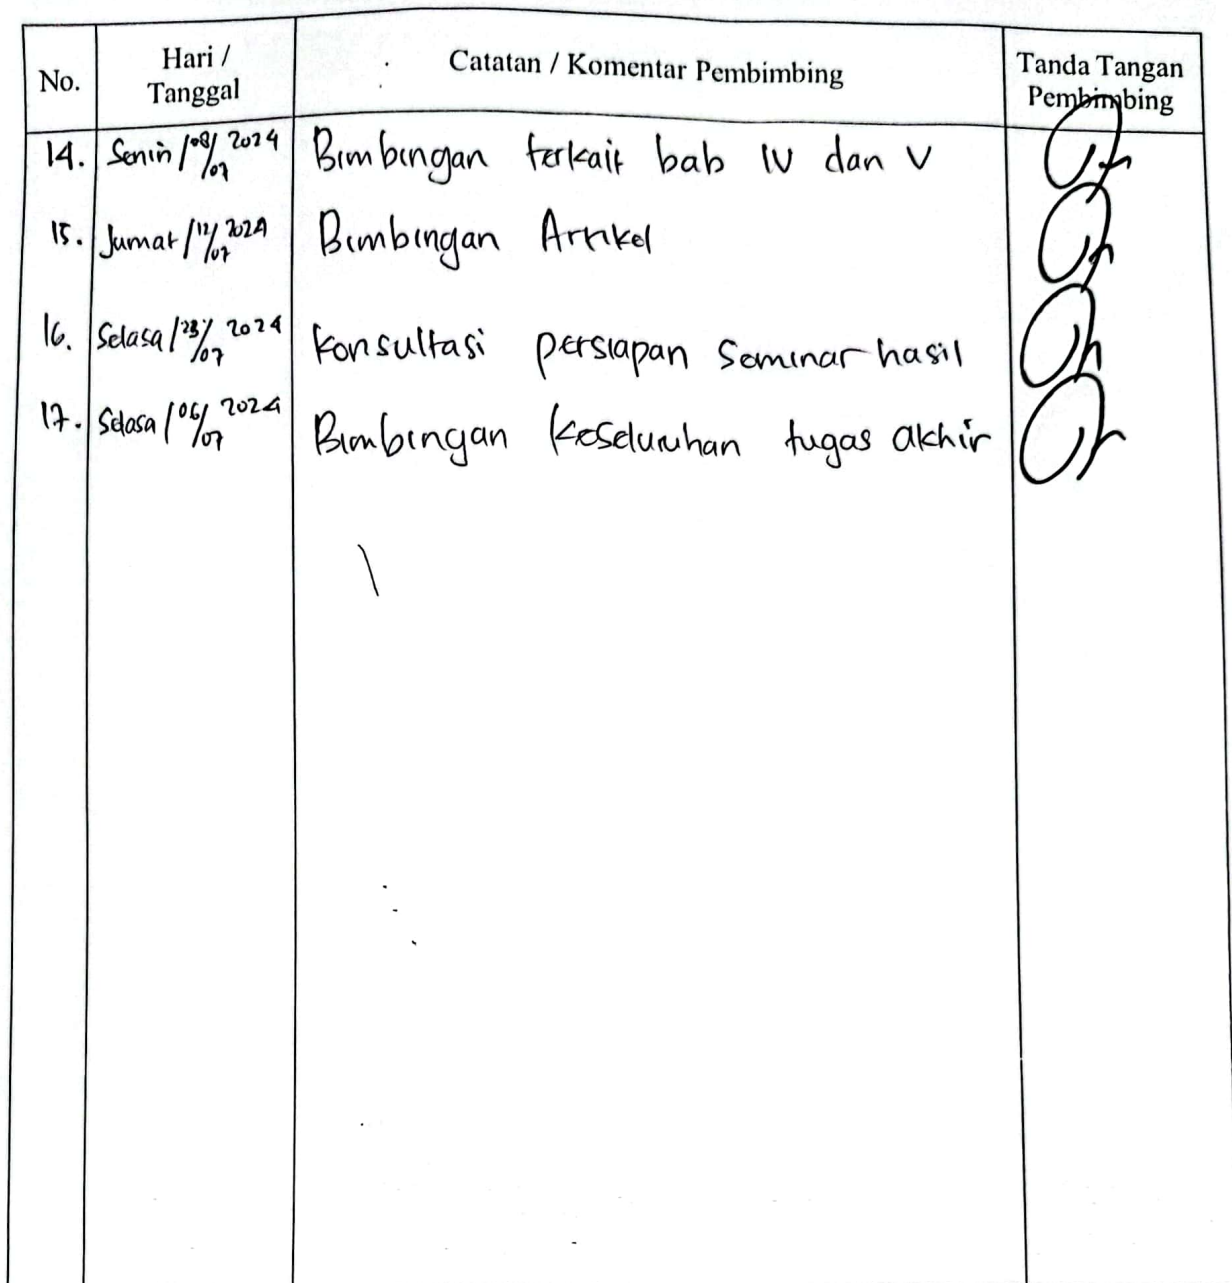 No. Hari / Tanggal Catatan / Komentar Pembimbing Tanda Tangan Pembimbing
14. Senin / 08/07 2024 Bimbingan terkait bab IV dan V
15. Jumat / 12/07 2024 Bimbingan Artikel
16. Selasa / 23/07 2024 Konsultasi persiapan Seminar hasil
17. Selasa / 06/07 2024 Bimbingan Keseluruhan tugas akhir